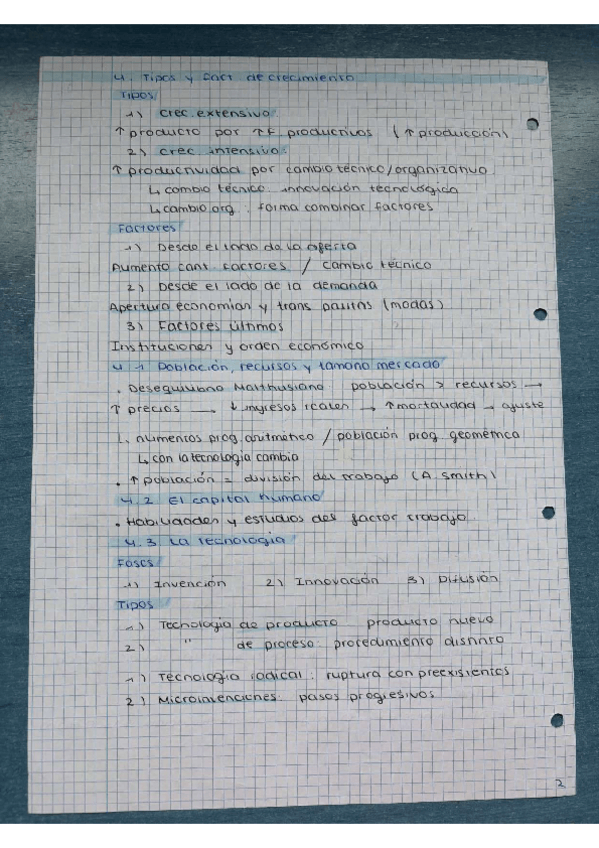 4. Tipos y fact. de crecimiento
Tipos
1) Crec. extensivo
↑ producto por ↑F. productivos (↑ producción)
2) Crec. intensivo
↑ productividad por cambio técnico/organizativo
↳ cambio técnico: innovación tecnológica
↳ cambio org.: forma combinar factores
Factores
1) Desde el lado de la oferta
Aumento cant. factores / cambio técnico
2) Desde el lado de la demanda
Apertura economías y trans. pautas (modas)
3) Factores últimos
Instituciones y orden económico
4.1 Población, recursos y tamaño mercado
. Desequilibrio Malthusiano población > recursos →
↑ precios → ↓ ingresos reales → ↑ mortalidad → ajuste
↳ alimentos prog. aritmético / población prog. geométrica
↳ con la tecnología cambio
. ↑ población = división del trabajo (A. Smith)
4.2 El capital humano
. Habilidades y estudios del factor trabajo
4.3 La tecnología
Fases
1) Invención 2) Innovación 3) Difusión
Tipos
1) Tecnología de producto producto nuevo
2) " de proceso: procedimiento distinto
1) Tecnología radical: ruptura con preexistentes
2) Microinvenciones: pasos progresivos
2